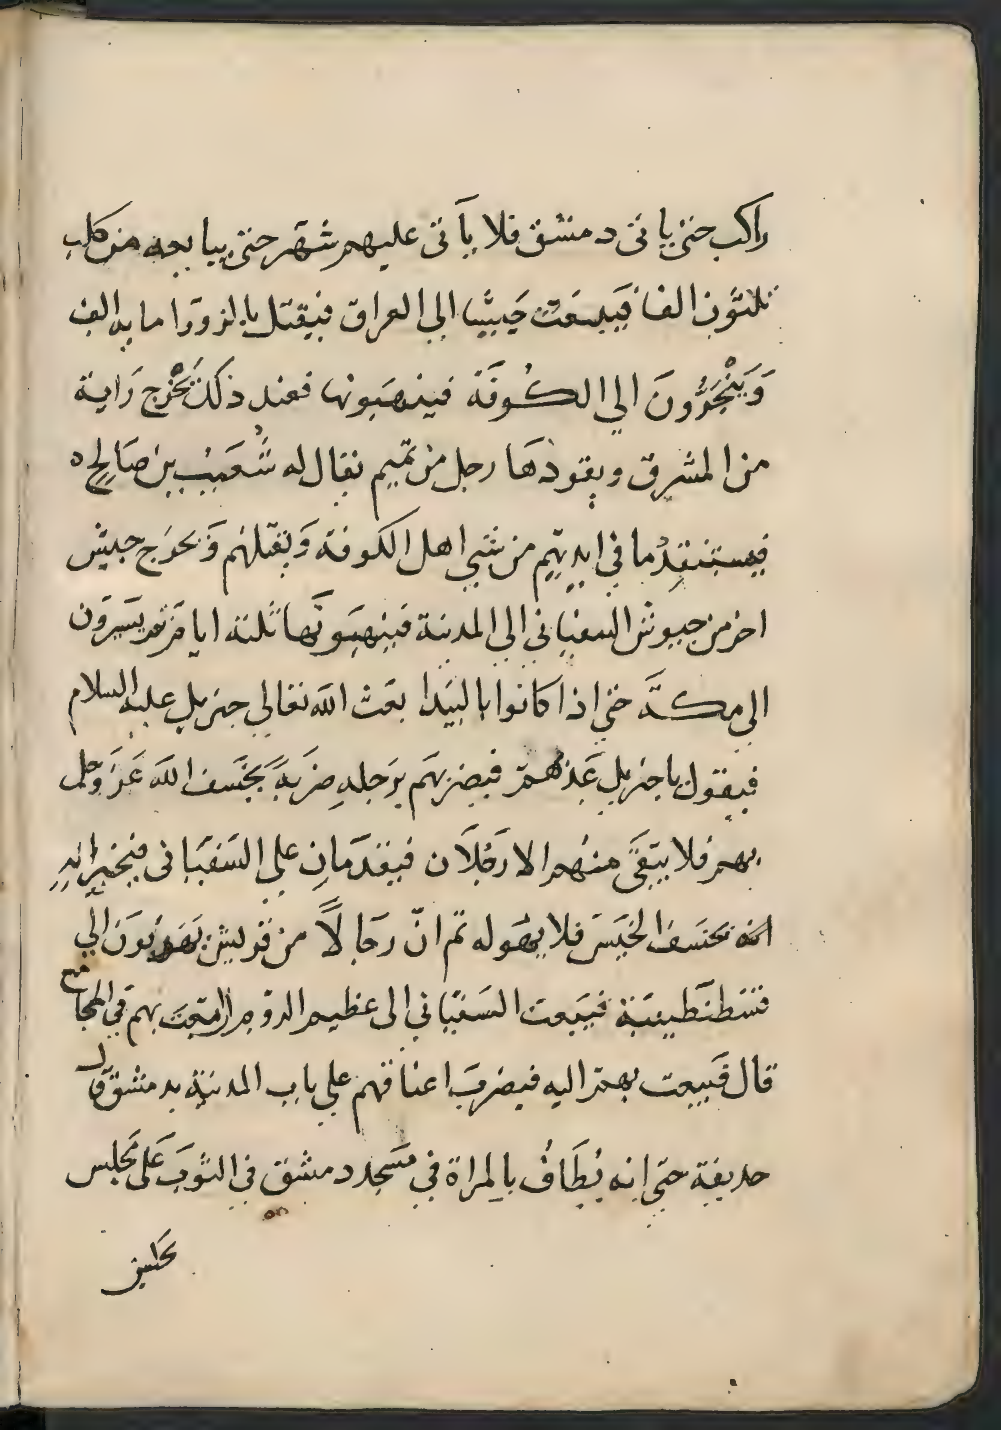 راكب حتى ياتى دمشق فلا يأتى عليهم شهر حتى يبايعه من كلب
ثلثون الفا فيبعث جيشا الى العراق فيقتل بالزورا ماية الف
وينجرون الى الكوفة فينهبونها فعند ذلك تخرج راية
من المشرق ويقودها رجل من تميم يقال له شعيب بن صالح
فيستنقذ ما فى ايديهم من سبى اهل الكوفة ويقتلهم ويخرج جيش
اخر من جيوش السفيانى الى المدينة فينهبونها ثلثة ايام ثم يسيرون
الى مكة حتى اذا كانوا بالبيدا بعث الله تعالى جبريل عليه السلام
فيقول يا جبريل عذبهم فيضربهم برجله ضربة يخسف الله عز وجل
بهم فلا يبقى منهم الا رجلان فيقدمان على السفيانى فيخبرانه
بخسف الجيش فلا يهوله ثم ان رجالا من قريش يهربون الى
قسطنطينية فيبعث السفيانى الى عظيم الروم ان ابعث بهم فى المجامع
قال فيبعث بهم اليه فيضرب اعناقهم على باب المدينة بدمشق قال
حذيفة حتى انه يطاف بالمراة فى مسجد دمشق فى الثوب على مجلس